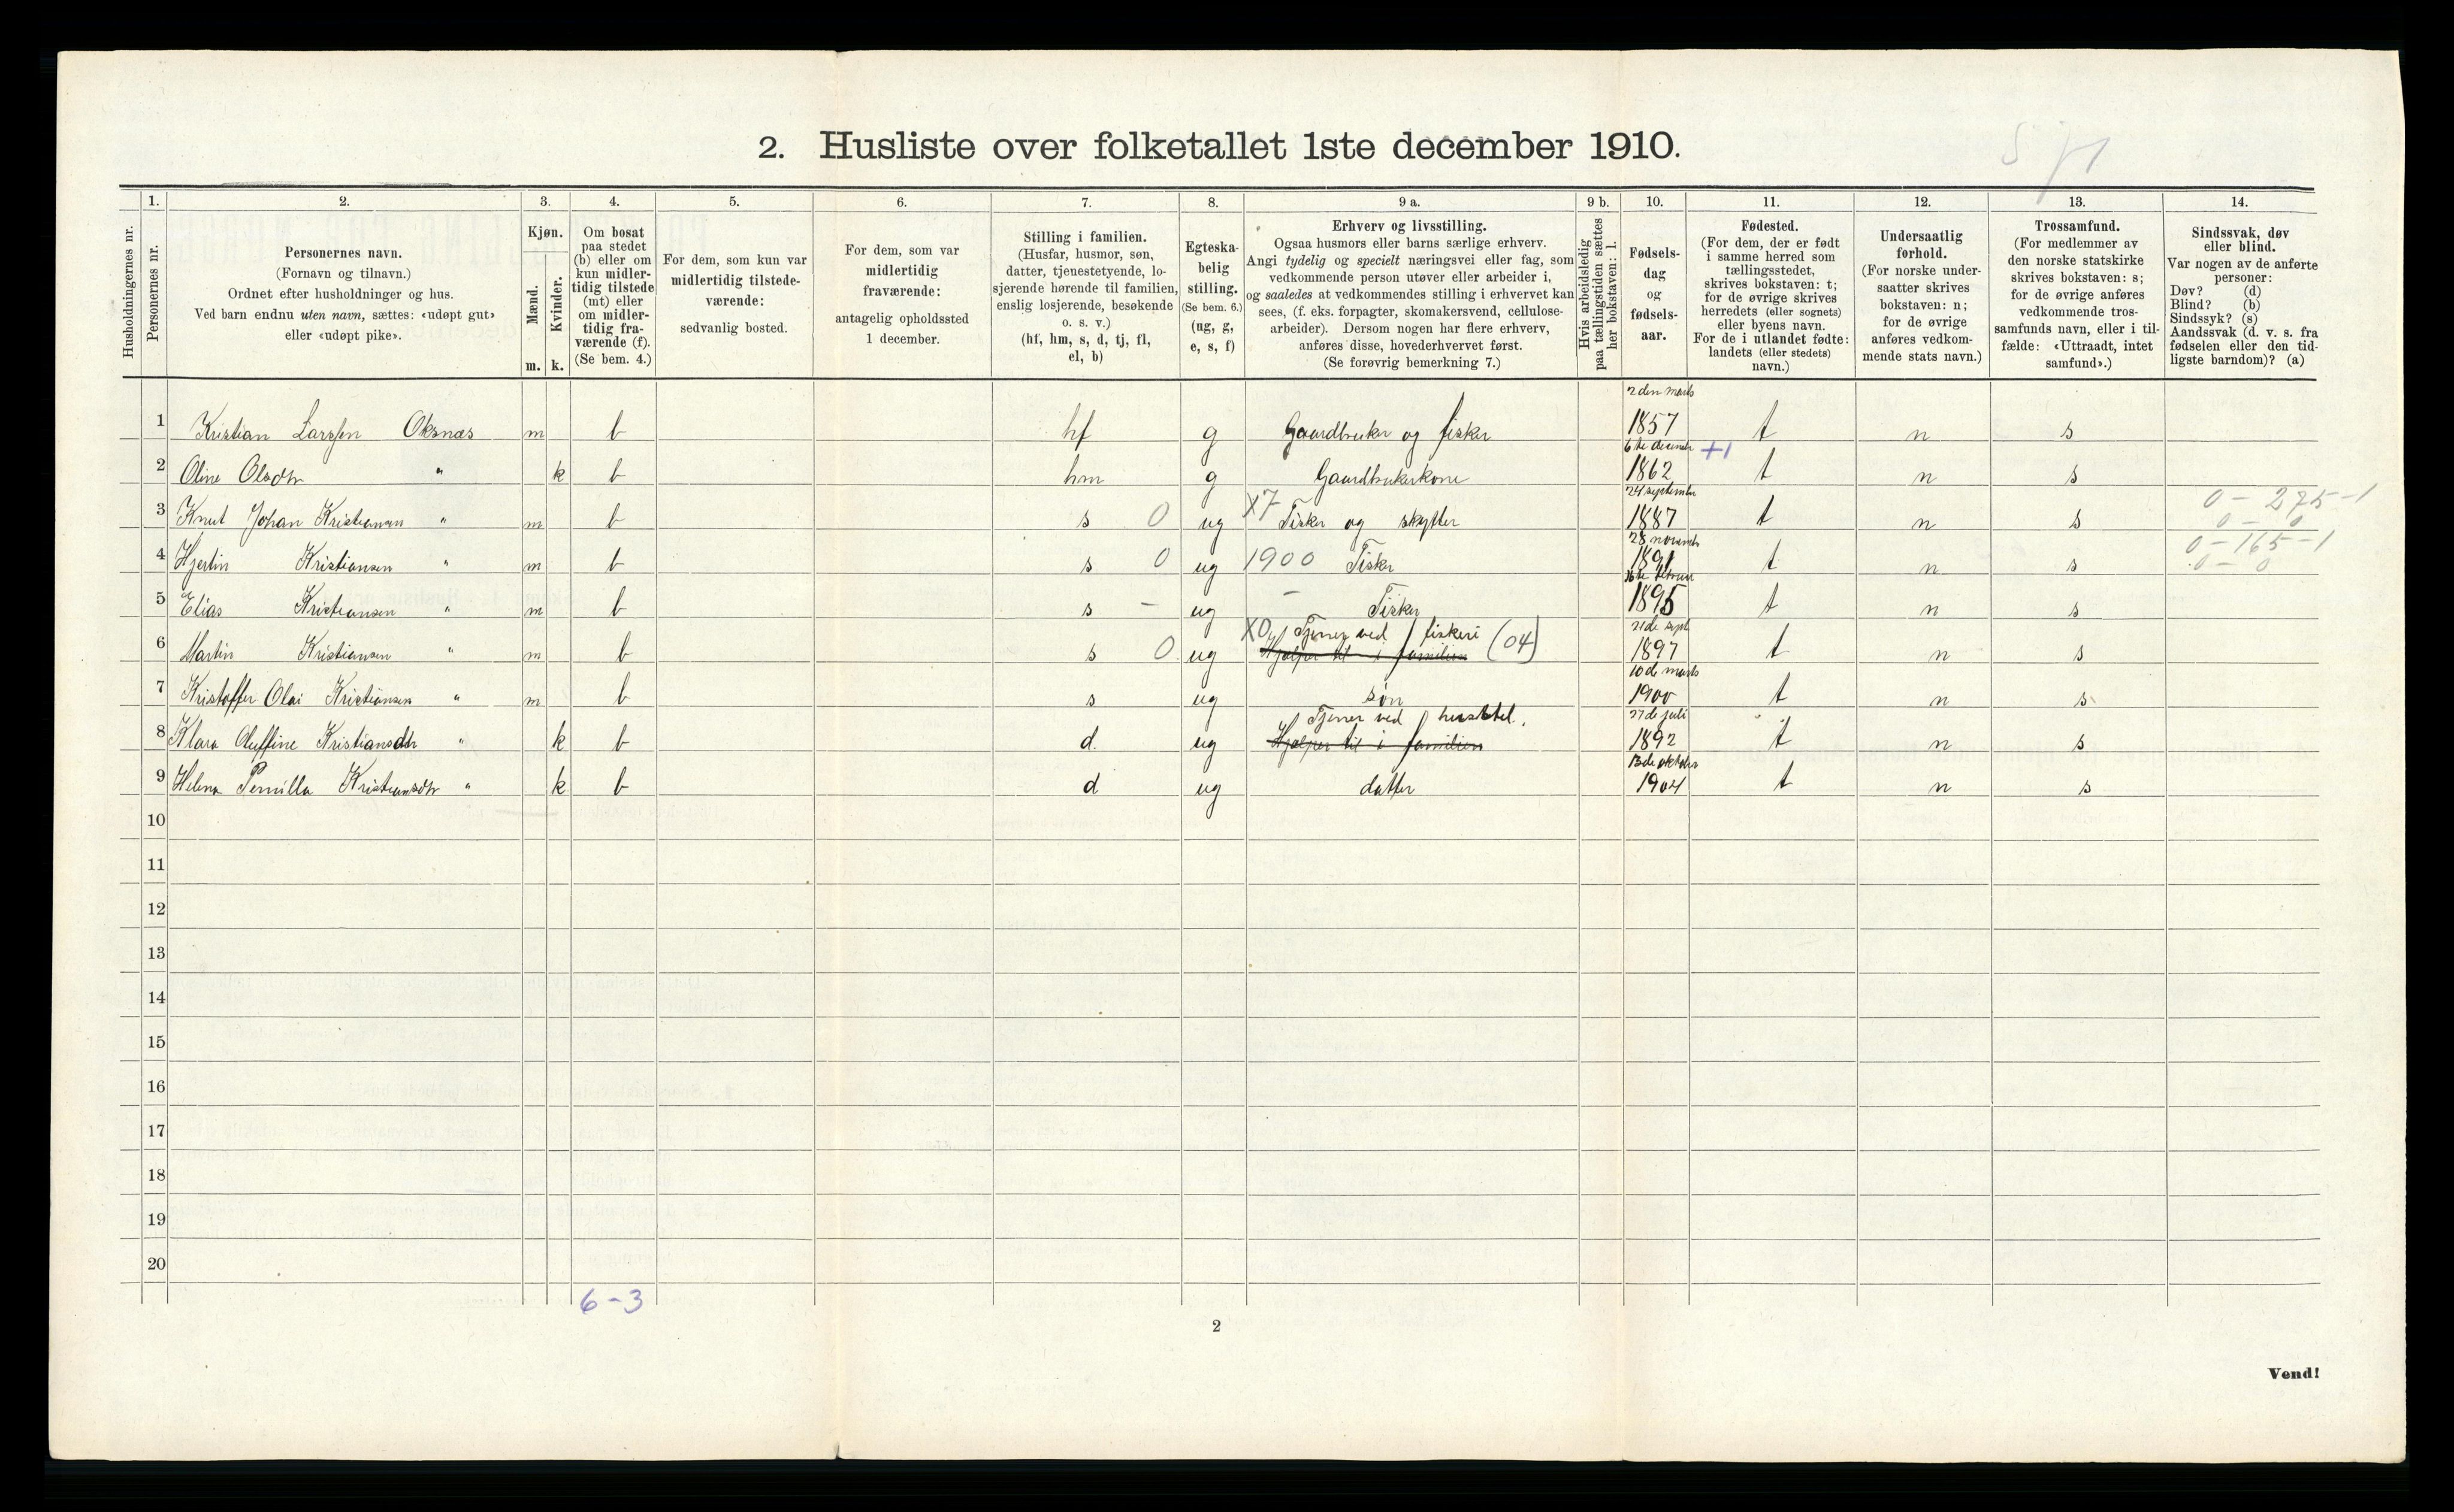 2. Husliste over folketallet 1ste december 1910.
Husholdningernes nr.
1.
Personernes nr.
2.
Personernes navn.
(Fornavn og tilnavn.)
Ordnet efter husholdninger og hus.
Ved barn endnu uten navn, sættes: «udøpt gut»
eller «udøpt pike».
3.
Kjøn.
Mænd.
Kvinder.
m. k.
4.
Om bosat
paa stedet
(b) eller om
kun midler-
tidig tilstede
(mt) eller
om midler-
tidig fra-
værende (f).
(Se bem. 4.)
5.
For dem, som kun var
midlertidig tilstede-
værende:
sedvanlig bosted.
6.
For dem, som var
midlertidig
fraværende:
antagelig opholdssted
1 december.
7.
Stilling i familien.
(Husfar, husmor, søn,
datter, tjenestetyende, lo-
sjerende hørende til familien,
enslig losjerende, besøkende
o. s. v.)
(hf, hm, s, d, tj, fl,
el, b)
8.
Egteska-
belig
stilling.
(Se bem. 6.)
(ug, g,
e, s, f)
9 a.
Erhverv og livsstilling.
Ogsaa husmors eller barns særlige erhverv.
Angi tydelig og specielt næringsvei eller fag, som
vedkommende person utøver eller arbeider i,
og saaledes at vedkommendes stilling i erhvervet kan
sees, (f. eks. forpagter, skomakersvend, cellulose-
arbeider). Dersom nogen har flere erhverv,
anføres disse, hovederhvervet først.
(Se forøvrig bemerkning 7.)
9 b.
Hvis arbeidsledig
paa tællingstiden sættes
her bokstaven: l.
10.
Fødsels-
dag
og
fødsels-
aar.
11.
Fødested.
(For dem, der er født
i samme herred som
tællingsstedet,
skrives bokstaven: t;
for de øvrige skrives
herredets (eller sognets)
eller byens navn.
For de i utlandet fødte:
landets (eller stedets)
navn.)
12.
Undersaatlig
forhold.
(For norske under-
saatter skrives
bokstaven: n;
for de øvrige
anføres vedkom-
mende stats navn.)
13.
Trossamfund.
(For medlemmer av
den norske statskirke
skrives bokstaven: s;
for de øvrige anføres
vedkommende tros-
samfunds navn, eller i til-
fælde: «Uttraadt, intet
samfund».)
14.
Sindssvak, døv
eller blind.
Var nogen av de anførte
personer:
Døv? (d)
Blind? (b)
Sindssyk? (s)
Aandssvak (d. v. s. fra
fødselen eller den tid-
ligste barndom)? (a)
2 den marts
1 Kristian Larssen Oksnæs m b hf g Gaardbruker og fisker 1857 t n s
6te december +1
2 Oline Olsdtr " k b hm g Gaardbrukerkone 1862 t n s
24 september 0 - 275 - 1
3 Knut Johan Kristiansen " m b s 0 ug X7 Fisker og skytter 1887 t n s 0 - 0
28 november 0 - 165 - 1
4 Hjertin Kristiansen " m b s 0 ug 1900 Fisker 1891 t n s 0 - 0
16te februar
5 Elias Kristiansen " m b s - ug - Fisker 1895 t n s
X0 Tjener ved fiskeri 21de sept
6 Martin Kristiansen " m b s 0 ug Hjælper til i familien (04) 1897 t n s
10de marts
7 Kristoffer Olai Kristiansen " m b s ug søn 1900 t n s
Tjener ved husstel. 27de juli
8 Klara Oluffine Kristiansdtr " k b d. ug Hjælper til i familien 1892 t n s
13de oktober
9 Helena Pernilla Kristiansdtr " k b d ug datter 1904 t n s
10
11
12
13
14
15
16
17
18
19
20
6 - 3
2
Vend!